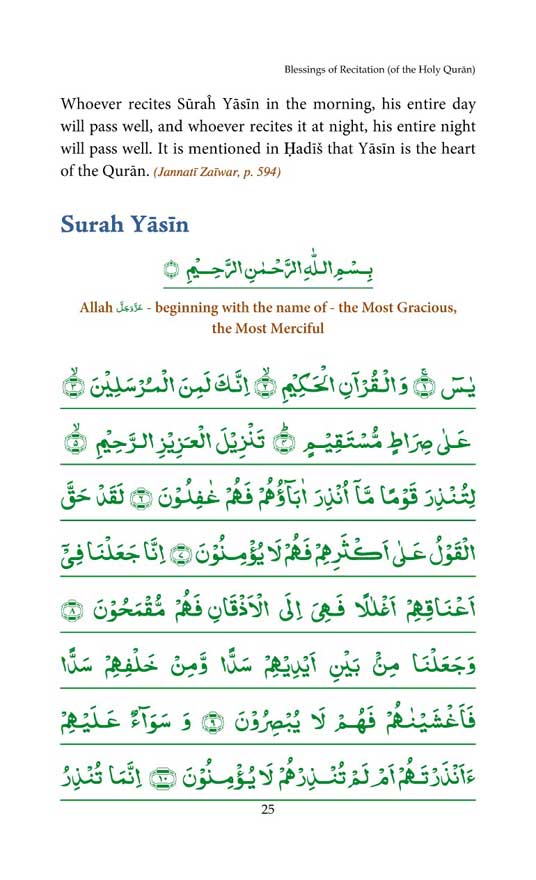 Blessings of Recitation (of the Holy Qurān)
Whoever recites Sūraĥ Yāsīn in the morning, his entire day
will pass well, and whoever recites it at night, his entire night
will pass well. It is mentioned in Ḥadīš that Yāsīn is the heart
of the Qurān. (Jannatī Zaīwar, p. 594)
Surah Yāsīn
بِسْمِ اللّٰهِ الرَّحْمٰنِ الرَّحِیْمِ ۝
Allah عَزَّوَجَلَّ - beginning with the name of - the Most Gracious,
the Most Merciful
یٰسٓ ﴿۱﴾ وَالْقُرْآنِ الْحَکِیْمِ ﴿۲﴾ اِنَّکَ لَمِنَ الْمُرْسَلِیْنَ ﴿۳﴾
عَلٰی صِرَاطٍ مُّسْتَقِیْمٍ ﴿۴﴾ تَنْزِیْلَ الْعَزِیْزِ الرَّحِیْمِ ﴿۵﴾
لِتُنْذِرَ قَوْمًا مَّاۤ اُنْذِرَ اٰبَآؤُهُمْ فَهُمْ غٰفِلُوْنَ ﴿۶﴾ لَقَدْ حَقَّ
الْقَوْلُ عَلٰۤی اَکْثَرِهِمْ فَهُمْ لَا یُؤْمِنُوْنَ ﴿۷﴾ اِنَّا جَعَلْنَا فِیْۤ
اَعْنَاقِهِمْ اَغْلٰلًا فَهِیَ اِلَی الْاَذْقَانِ فَهُمْ مُّقْمَحُوْنَ ﴿۸﴾
وَجَعَلْنَا مِنْۢ بَیْنِ اَیْدِیْهِمْ سَدًّا وَّمِنْ خَلْفِهِمْ سَدًّا
فَاَغْشَیْنٰهُمْ فَهُمْ لَا یُبْصِرُوْنَ ﴿۹﴾ وَ سَوَآءٌ عَلَیْهِمْ
ءَاَنْذَرْتَهُمْ اَمْ لَمْ تُنْذِرْهُمْ لَا یُؤْمِنُوْنَ ﴿۱۰﴾ اِنَّمَا تُنْذِرُ
25